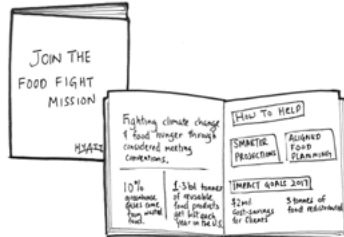 JOIN THE
FOOD FIGHT
MISSION
HYATT
Fighting climate change
& food hunger through
considered meeting
conventions.
10%
greenhouse
gases come
from wasted
food.
1.3 bil tonnes
of reusable
food products
get lost each
year in the U.S.
HOW TO HELP
SMARTER
PROJECTIONS
ALIGNED
FOOD
PLANNING
IMPACT GOALS 2017
$2mil
cost-savings
for clients
3 tonnes of
food redistributed